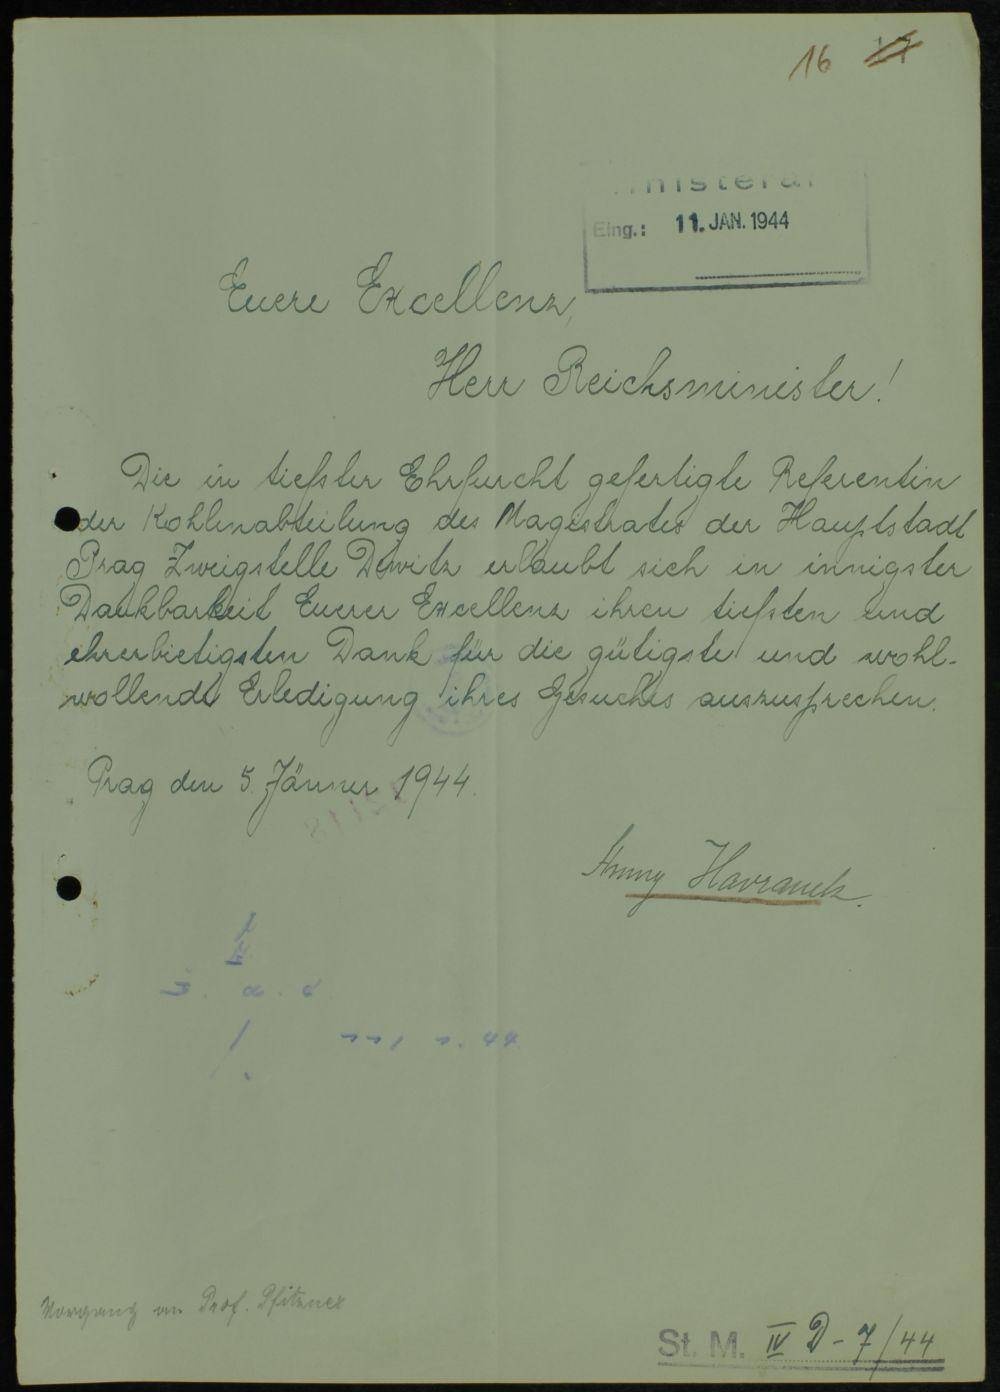 16 17
Ministeramt
Eing.: 11. JAN. 1944
Euere Excellenz,
Herr Reichsminister!
Die in tiefster Ehrfurcht gefertigte Referentin
der Kohlenabteilung des Magistrates der Hauptstadt
Prag Zweigstelle Dewitz erlaubt sich in innigster
Dankbarkeit Euerer Excellenz ihren tiefsten und
ehrerbietigsten Dank für die gütigste und wohl-
wollende Erledigung ihres Gesuches auszusprechen.
Prag den 5. Jänner 1944.
Anny Havranek.
Vorgang an Prof. Pfitzner
St. M. IV D - 7/44